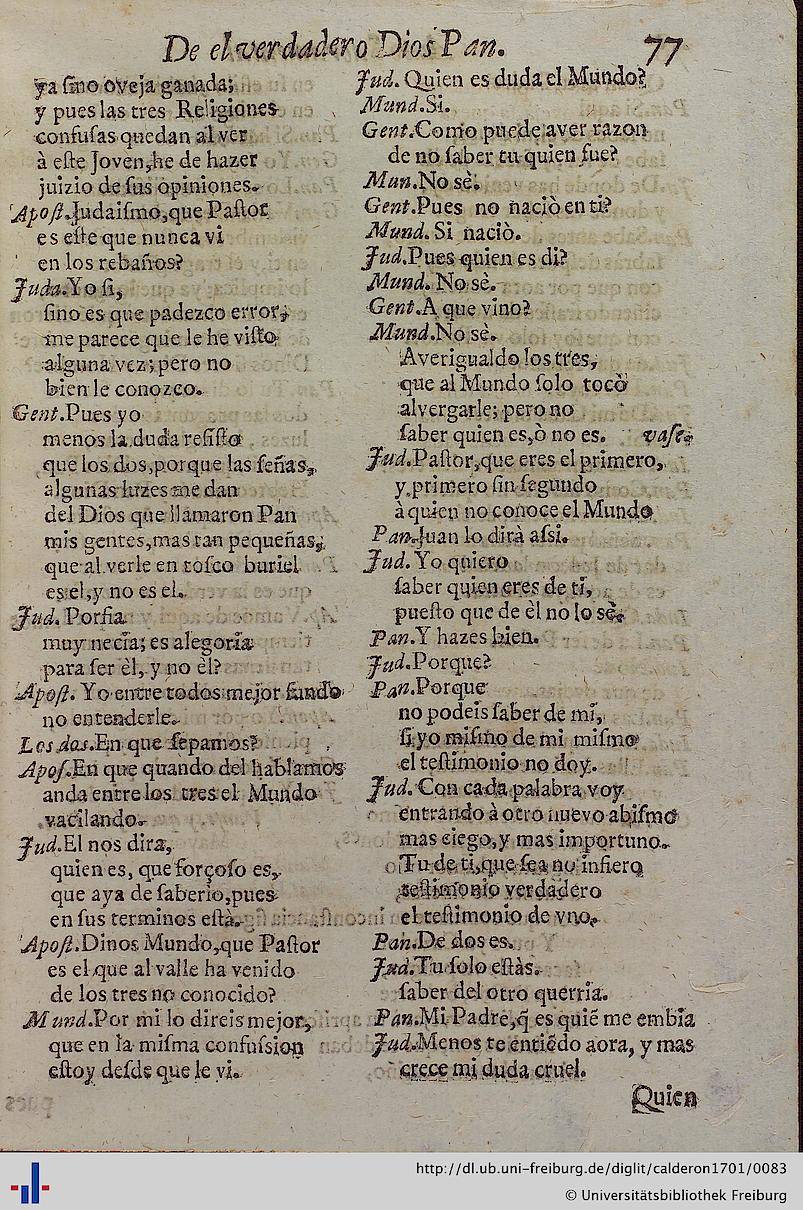 De el verdadero Dios Pan. 77
ya ſino oveja ganada;
y pues las tres Religiones
confuſas quedan al ver
à eſte Joven, he de hazer
juizio de ſus opiniones.
Apoſt. Judaiſmo, que Paſtor
es eſte que nunca vi
en los rebaños?
Juda. Yo ſi,
ſino es que padezco error,
me parece que le he viſto
alguna vez; pero no
bien le conozco.
Gent. Pues yo
menos la duda reſiſto
que los dos, porque las ſeñas,
algunas luzes me dan
del Dios que llamaron Pan
mis gentes, mas tan pequeñas,
que al verle en toſco buriel
es el, y no es el.
Jud. Porfia
muy necia; es alegoria
para ſer èl, y no èl?
Apoſt. Yo entre todos mejor fundo
no entenderle.
Los dos. En que ſepamos?
Apoſ. En que quando del hablamos
anda entre los tres el Mundo
vacilando.
Jud. El nos dira,
quien es, que forçoſo es,
que aya de ſaberlo, pues
en ſus terminos eſtà.
Apoſt. Dinos Mundo, que Paſtor
es el que al valle ha venido
de los tres no conocido?
Mund. Por mi lo direis mejor,
que en la miſma confuſsion
eſtoy deſde que le vi.
Jud. Quien es duda el Mundo?
Mund. Si.
Gent. Como puede aver razon
de no ſaber tu quien fue?
Mun. No sè.
Gent. Pues no naciò en ti?
Mund. Si naciò.
Jud. Pues quien es di?
Mund. No sè.
Gent. A que vino?
Mund. No sè.
Averigualdo los tres,
que al Mundo ſolo tocò
alvergarle; pero no
ſaber quien es, ò no es. vaſe.
Jud. Paſtor, que eres el primero,
y primero ſin ſegundo
à quien no conoce el Mundo
Pan. Juan lo dirà aſsi.
Jud. Yo quiero
ſaber quien eres de ti,
pueſto que de èl no lo sè.
Pan. Y hazes bien.
Jud. Porque?
Pan. Porque
no podeis ſaber de mi,
ſi yo miſmo de mi miſmo
el teſtimonio no doy.
Jud. Con cada palabra voy
entrando à otro nuevo abiſmo
mas ciego, y mas importuno.
Tu de ti, que ſea no infiero
teſtimonio verdadero
el teſtimonio de vno.
Pan. De dos es.
Jud. Tu ſolo eſtàs.
ſaber del otro querria.
Pan. Mi Padre, q̃ es quiẽ me embia
Jud. Menos te entiẽdo aora, y mas
crece mi duda cruel.
Quien
http://dl.ub.uni-freiburg.de/diglit/calderon1701/0083
© Universitätsbibliothek Freiburg